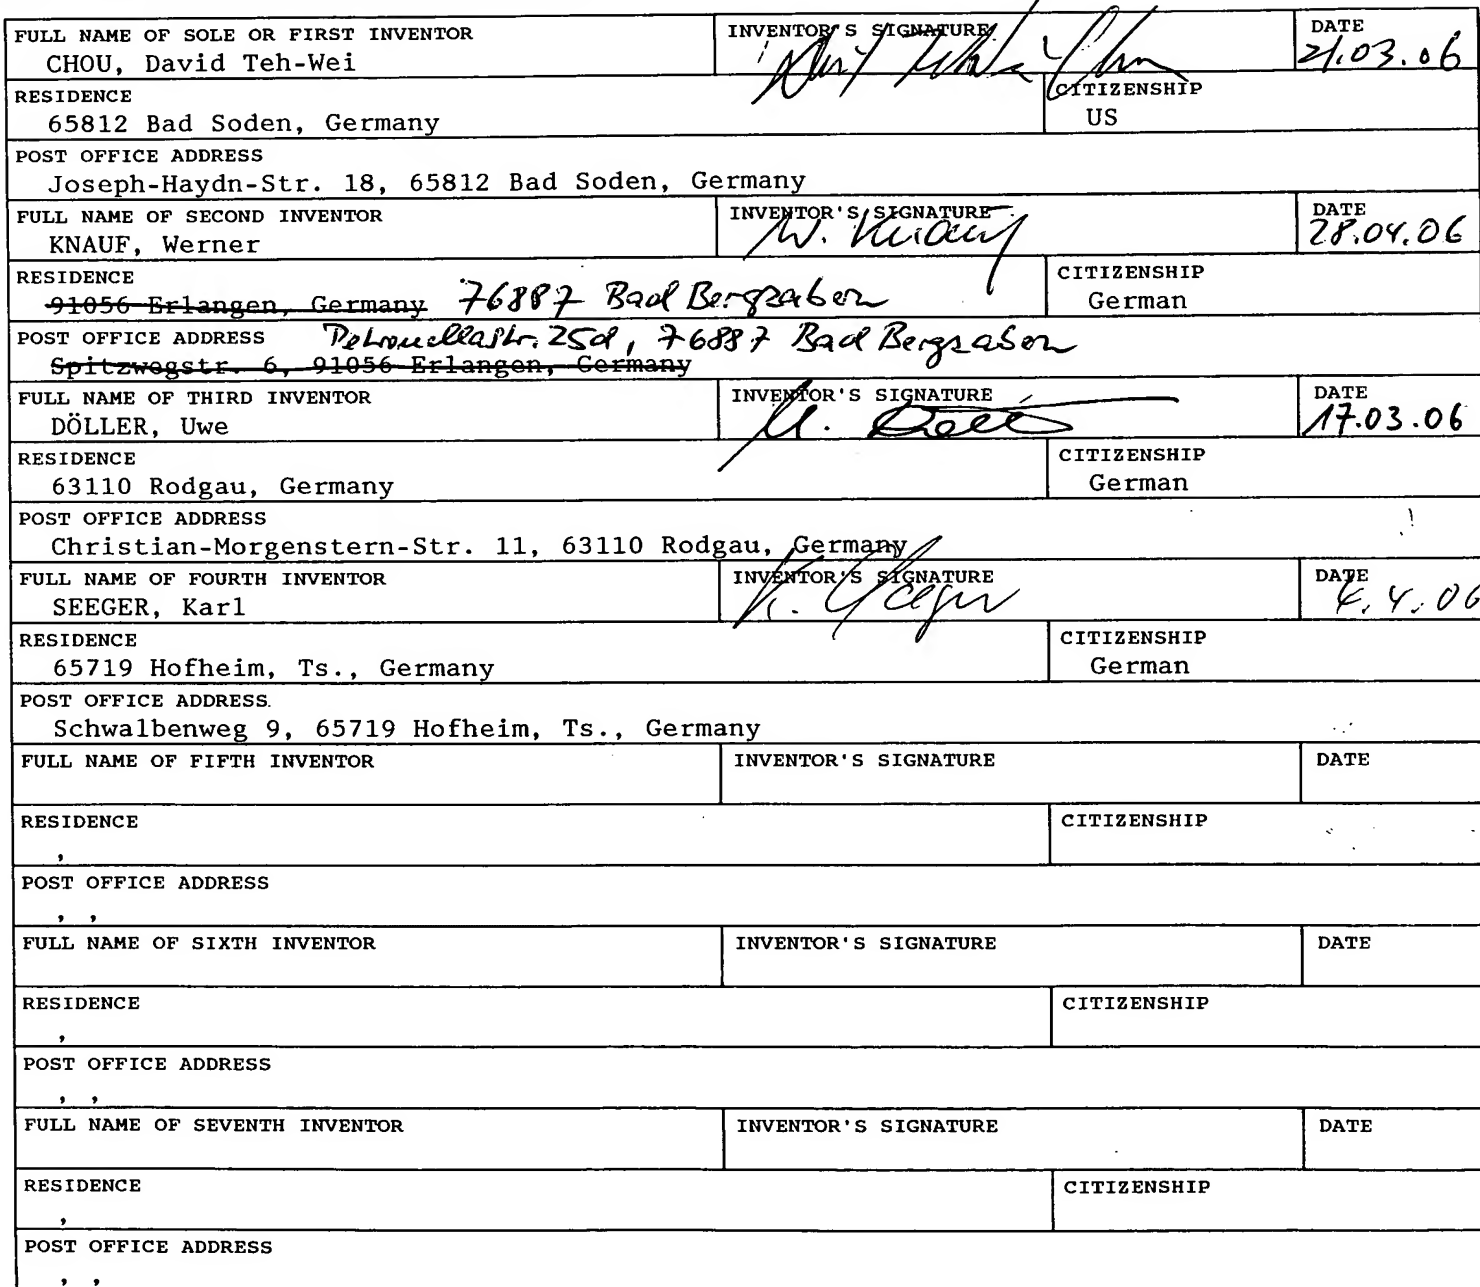 FULL NAME OF SOLE OR FIRST INVENTOR INVENTOR'S SIGNATURE DATE
CHOU, David Teh-Wei 21.03.06
RESIDENCE CITIZENSHIP
65812 Bad Soden, Germany US
POST OFFICE ADDRESS
Joseph-Haydn-Str. 18, 65812 Bad Soden, Germany
FULL NAME OF SECOND INVENTOR INVENTOR'S SIGNATURE DATE
KNAUF, Werner W. Knauf 28.04.06
RESIDENCE CITIZENSHIP
91056 Erlangen, Germany 76887 Bad Bergzabern German
POST OFFICE ADDRESS Petronellastr. 25d, 76887 Bad Bergzabern
Spitzwegstr. 6, 91056 Erlangen, Germany
FULL NAME OF THIRD INVENTOR INVENTOR'S SIGNATURE DATE
DÖLLER, Uwe U. 17.03.06
RESIDENCE CITIZENSHIP
63110 Rodgau, Germany German
POST OFFICE ADDRESS
Christian-Morgenstern-Str. 11, 63110 Rodgau, Germany
FULL NAME OF FOURTH INVENTOR INVENTOR'S SIGNATURE DATE
SEEGER, Karl K. Seeger
RESIDENCE CITIZENSHIP
65719 Hofheim, Ts., Germany German
POST OFFICE ADDRESS.
Schwalbenweg 9, 65719 Hofheim, Ts., Germany
FULL NAME OF FIFTH INVENTOR INVENTOR'S SIGNATURE DATE
RESIDENCE CITIZENSHIP
,
POST OFFICE ADDRESS
, ,
FULL NAME OF SIXTH INVENTOR INVENTOR'S SIGNATURE DATE
RESIDENCE CITIZENSHIP
,
POST OFFICE ADDRESS
, ,
FULL NAME OF SEVENTH INVENTOR INVENTOR'S SIGNATURE DATE
RESIDENCE CITIZENSHIP
,
POST OFFICE ADDRESS
, ,